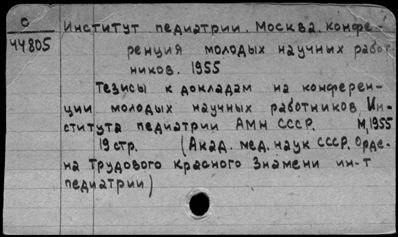 С
44805
Институт педиатрии. Москва. Конфе-
ренция молодых научных работ-
ников. 1955
Тезисы к докладам на конферен-
ции молодых научных работников Ин-
ститута педиатрии АМН СССР. М, 1955
19 стр. (Акад. мед. наук СССР. Орде-
на Трудового Красного Знамени ин-т
педиатрии)